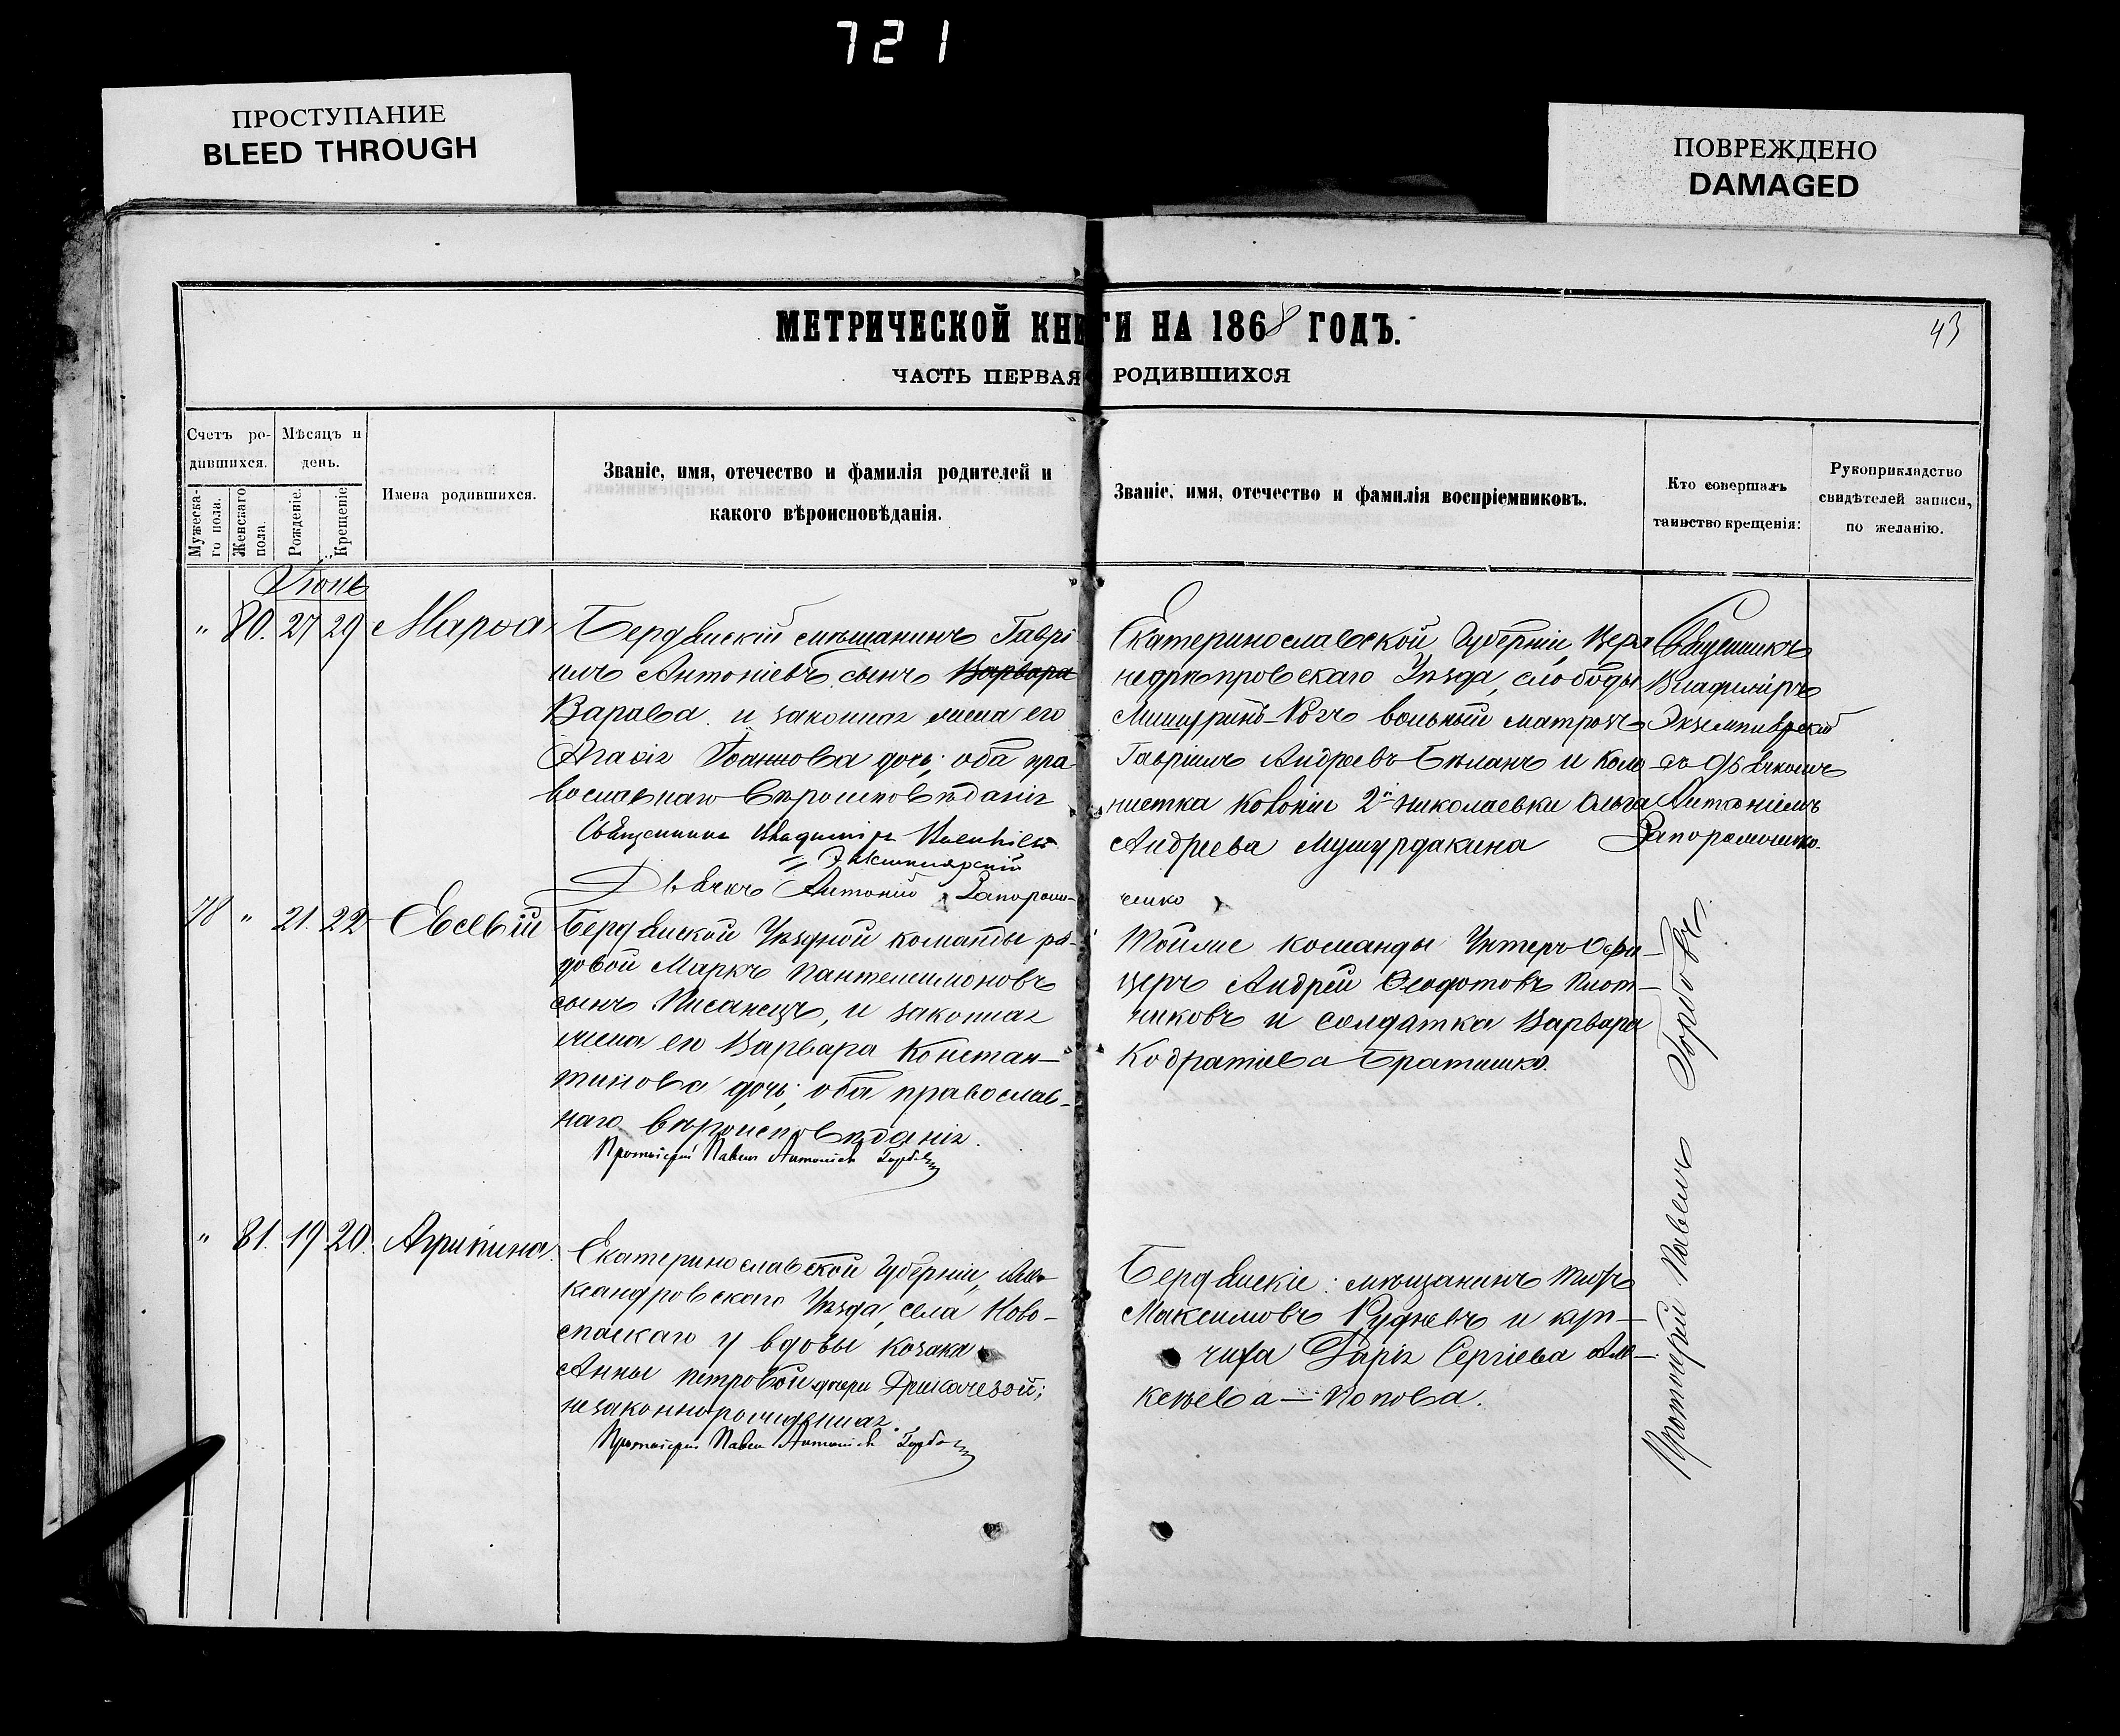 721
ПРОСТУПАНИЕ
BLEED THROUGH
ПОВРЕЖДЕНО
DAMAGED
МЕТРИЧЕСКОЙ КНИГИ НА 1868 ГОДЪ.
43
ЧАСТЬ ПЕРВАЯ РОДИВШИХСЯ
Счетъ ро-
дившихся.
Мужеска-
го пола.
Женскаго
пола.
Мѣсяцъ и
день.
Рожденіе.
Крещеніе.
Имена родившихся.
Званіе, имя, отечество и фамилія родителей и
какого вѣроисповѣданія.
Званіе, имя, отечество и фамилія воспріемниковъ.
Кто совершалъ
таинство крещенія:
Рукоприкладство
свидѣтелей записи,
по желанію.
Іюнь
" 80. 27 29 Марѳа
Бердянскій мѣщанинъ Гаврі
илъ Антоніевъ сынъ Варвара
Варава и законная жена его
Агафія Іоаннова дочь; оба пра-
вославнаго вѣроисповѣданія
Священникъ Владиміръ
Экземплярскій
Дьячекъ Антоній Запорош-
Екатеринославской Губерніи, Верх
неднѣпровскаго Уѣзда, слободы
Мишуринъ-Рогъ вольный матрозъ
Гавріилъ Андреевъ Бѣланъ и коло
нистка колоніи 2й Николаевки Ольга
Андреева
ченко
Священникъ
Владиміръ
Экземплярскій
съ дьячкомъ
Антоніемъ
Запорошенко.
78 " 21. 22 Евсевій
Бердянской Уѣздной команды ря-
довой Маркъ Пантелеимоновъ
сынъ Писанецъ, и законная
жена его Варвара Констан-
тинова дочь; оба православ-
наго вѣроисповѣданія.
Протоіерей Павелъ Антоніевъ Горбовъ
Тойже команды Унтеръ-Офи-
церъ Андрей Ѳеофотовъ Плот-
никовъ и солдатка Варвара
Кодратіева Братишко.
" 81. 19 20. Агрипина.
Екатеринославской Губерніи, Але-
ксандровскаго Уѣзда, села Ново-
спаскаго у вдовы козака
Анны Петровой дочери
незаконнорожденная.
Протоіерей Павелъ Антоніевъ Горбовъ
Бердянскіе: мѣщанинъ
Максимовъ Рудневъ и куп-
чиха Дарія Сергіева Але-
ксѣева — Попова.
Протоіерей Павелъ Горбовъ.